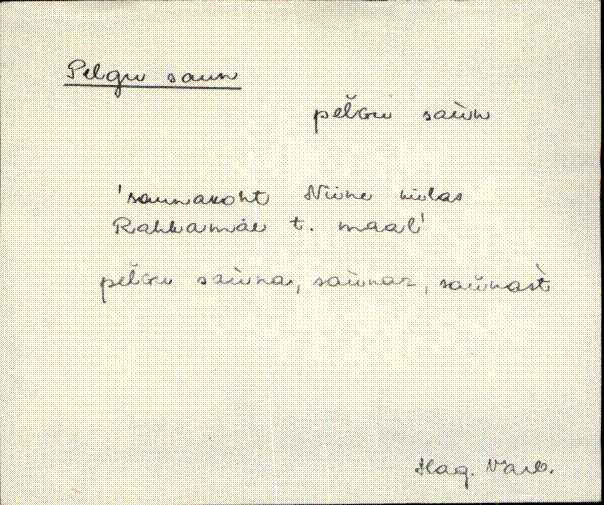 Pelgu saun
pel̆gu saùn
'saunakoht Niine külas
Rahkamäe t. maal'
pel̆gu saùna, saùnaz, saùnast
Hag. Varb.